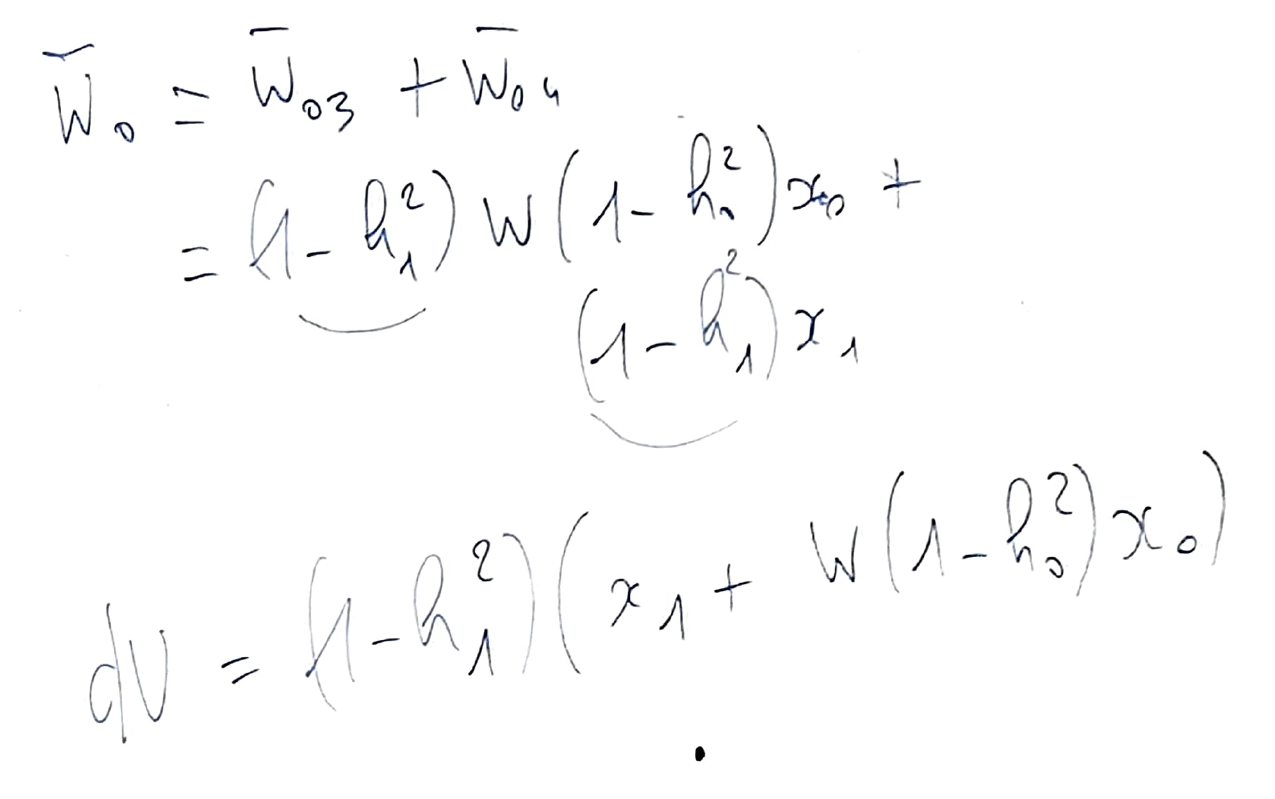 W̄₀ = W̄₀₃ + W̄₀₄
= (1 - h₁²) W (1 - h₀²) x₀ +
(1 - h₁²) x₁
dU = (1 - h₁²) (x₁ + W (1 - h₀²) x₀)